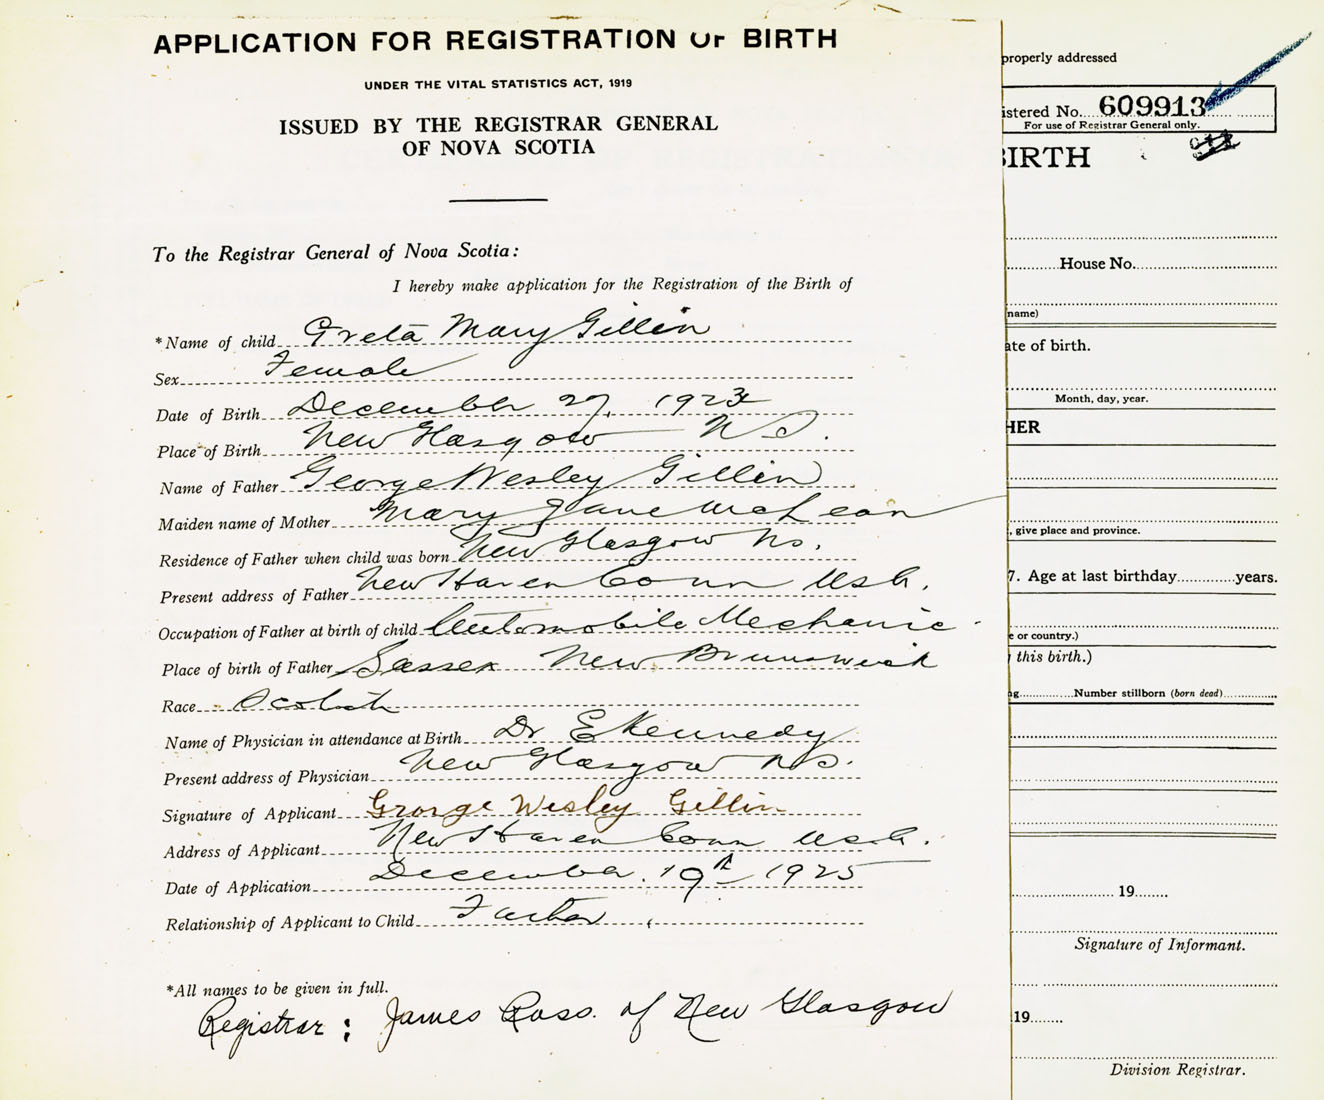 APPLICATION FOR REGISTRATION OF BIRTH
UNDER THE VITAL STATISTICS ACT, 1919
ISSUED BY THE REGISTRAR GENERAL
OF NOVA SCOTIA
To the Registrar General of Nova Scotia:
I hereby make application for the Registration of the Birth of
*Name of child Greta Mary Gillin
Sex Female
Date of Birth December 27, 1923
Place of Birth New Glasgow N S.
Name of Father George Wesley Gillin
Maiden name of Mother Mary Jane McLean
Residence of Father when child was born New Glasgow Ns.
Present address of Father New Haven Conn Usa.
Occupation of Father at birth of child Automobile Mechanic
Place of birth of Father Sussex New Brunswick
Race Scotish
Name of Physician in attendance at Birth Dr E Kennedy
Present address of Physician New Glasgow N S.
Signature of Applicant George Wesley Gillin
Address of Applicant New Haven Conn Usa.
Date of Application December 19th 1925
Relationship of Applicant to Child Father
*All names to be given in full.
Registrar: James Ross. of New Glasgow
properly addressed
istered No. 609913
For use of Registrar General only.
IRTH
House No.
name)
ate of birth.
Month, day, year.
HER
, give place and province.
7. Age at last birthday years.
e or country.)
this birth.)
Number stillborn (born dead)
19
Signature of Informant.
19
Division Registrar.